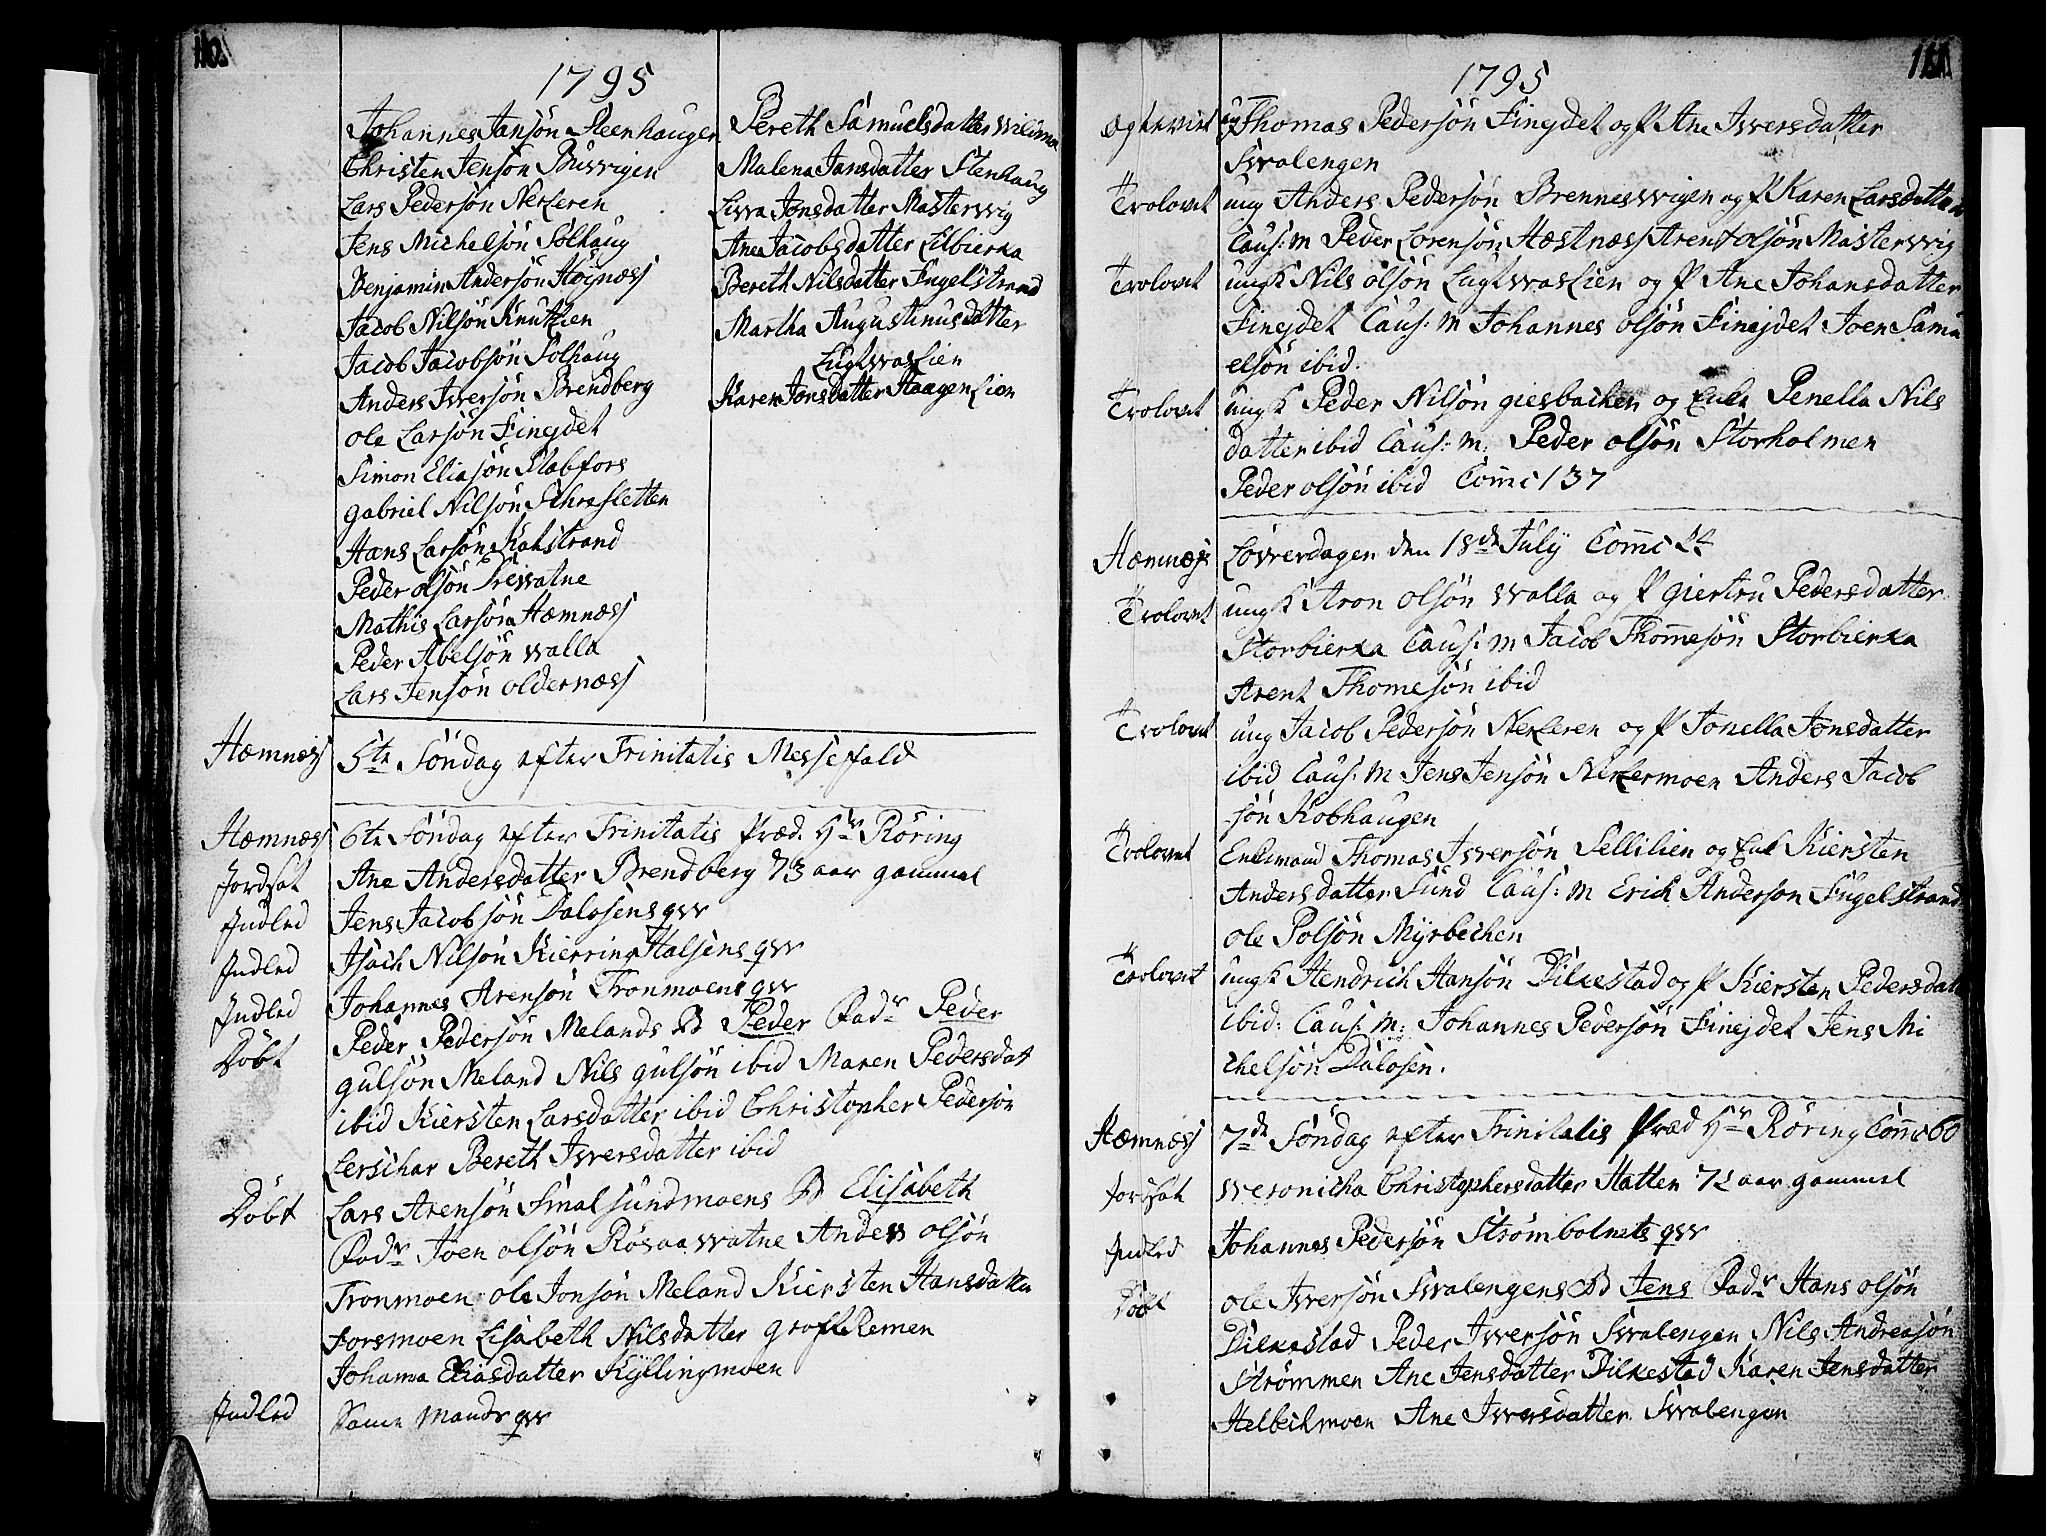 1795
Johannes Jansön Steenhauger
Christen Jensön Busvigen
Lars Pedersön Nerleren
Jens Michelsön Solhaug
Benjamin Andersön Högnæss
Jacob Nilsön Knutlien
Jacob Jacobsön Solhaug
Anders Iversön Brendberg
ole Larsön Finejdet
Simon Eliasön Slabfors
gabriel Nilsön
Hans Larsön Rabstrand
Peder olsön
Mathis Larsön Hæmnæss
Peder Abelsön walla
Lars Jensön oldernæss
Bereth Samuelsdatter
Malena Jansdatter Stenhaug
Livva Jonsdatter Mastervig
Ane Jacobsdatter Lilbierka
Bereth Nilsdatter Fugelstrand
Martha Augustinusdatter
Lugtvaslien
Karen Jonsdatter Haagenlien
Hæmnæss 5te Söndag efter Trinitatis Messefald
Hæmnæss 6te Söndag efter Trinitatis Præd. Hr Röring
Jordsat Ane Andersdatter Brendberg 73 aar gammel
Indled Jens Jacobsön Dalosens qvr
Indled Isach Nilsön Kierring Halsens qvr
Indled Johannes Arensön Tronmoens qvr
Döbt Peder Pedersön Melands B Peder Fadr Peder
gulsön Meland Nils gulsön ibid Maren Pedersdat
ibid Kiersten Larsdatter ibid Christopher Pedersön
Lerschar Bereth Iversdatter ibid
Döbt Lars Arensön Smalsundmoens B Elisabeth
Fadr Joen olsön Rösaavatne Anders olsön
Tronmoen ole Jonsön Meland Kiersten Hansdatter
Forsmoen Lisabeth Nilsdatter
Johanna Eliasdatter Kyllingmoen
Indled Samme Mands qvr
1795
Ægteviet ug Thomas Pedersön Finejdet og P Ane Iversdatter
Svalengen
Trolovet ung Anders Pedersön Brennesvigen og P Karen Larsdatter
Caus: M Peder Lorensön Hæstnæss Arent olsön Mastervig
Trolovet ungk Nils olsön Lugtvaslien og P Ane Johansdatter
Finejdet Caus: M Johannes olsön Finejdet Joen Samu
elsön ibid.
Trolovet ungk Peder Nilsön giesbacken og Enke Penella Nils
datter ibid Caus: M: Peder olsön Storholmen
Peder olsön ibid Com̄c 137
Hæmnæss Lövverdagen den 18de July Com̄c
Trolovet ungk Aron olsön walla og P giertru Pedersdatter
Storbierka Caus: M Jacob Thomesön Storbierka
Arent Thomesön ibid
Trolovet ung Jacob Pedersön Nerleren og P Jonella Jonsdatter
ibid Caus: M Jens Jensön Nerlermoen Anders Jacob
sön Kobhaugen
Trolovet Enkemand Thomas Iversön Sellilien og Enk Kiersten
Andersdatter Sund Caus: M Erich Andersön Fugelstrand
ole Polsön Myrbechen
Trolovet ungk Hendrich Hansön Dilkestad og P Kiersten Pedersdat
ibid: Caus: M: Johannes Pedersön Finejdet Jens Mi
chelsön Dalosen.
Hæmnæss 7de Söndag efter Trinitatis Præd Hr Röring Com̄c 60
Jordsat weronicha Christophersdatter Hatten 72 aar gammel
Indled Johannes Pedersön qvr
Döbt ole Iversön Svalengens B Jens Fadr Hans olsön
Dilkestad Peder Iversön Svalengen Nils Andreasön
Strömmen Ane Jensdatter Dilkestad Karen Jensdatter
Helbechmoen Ane Iversdatter Svalengen